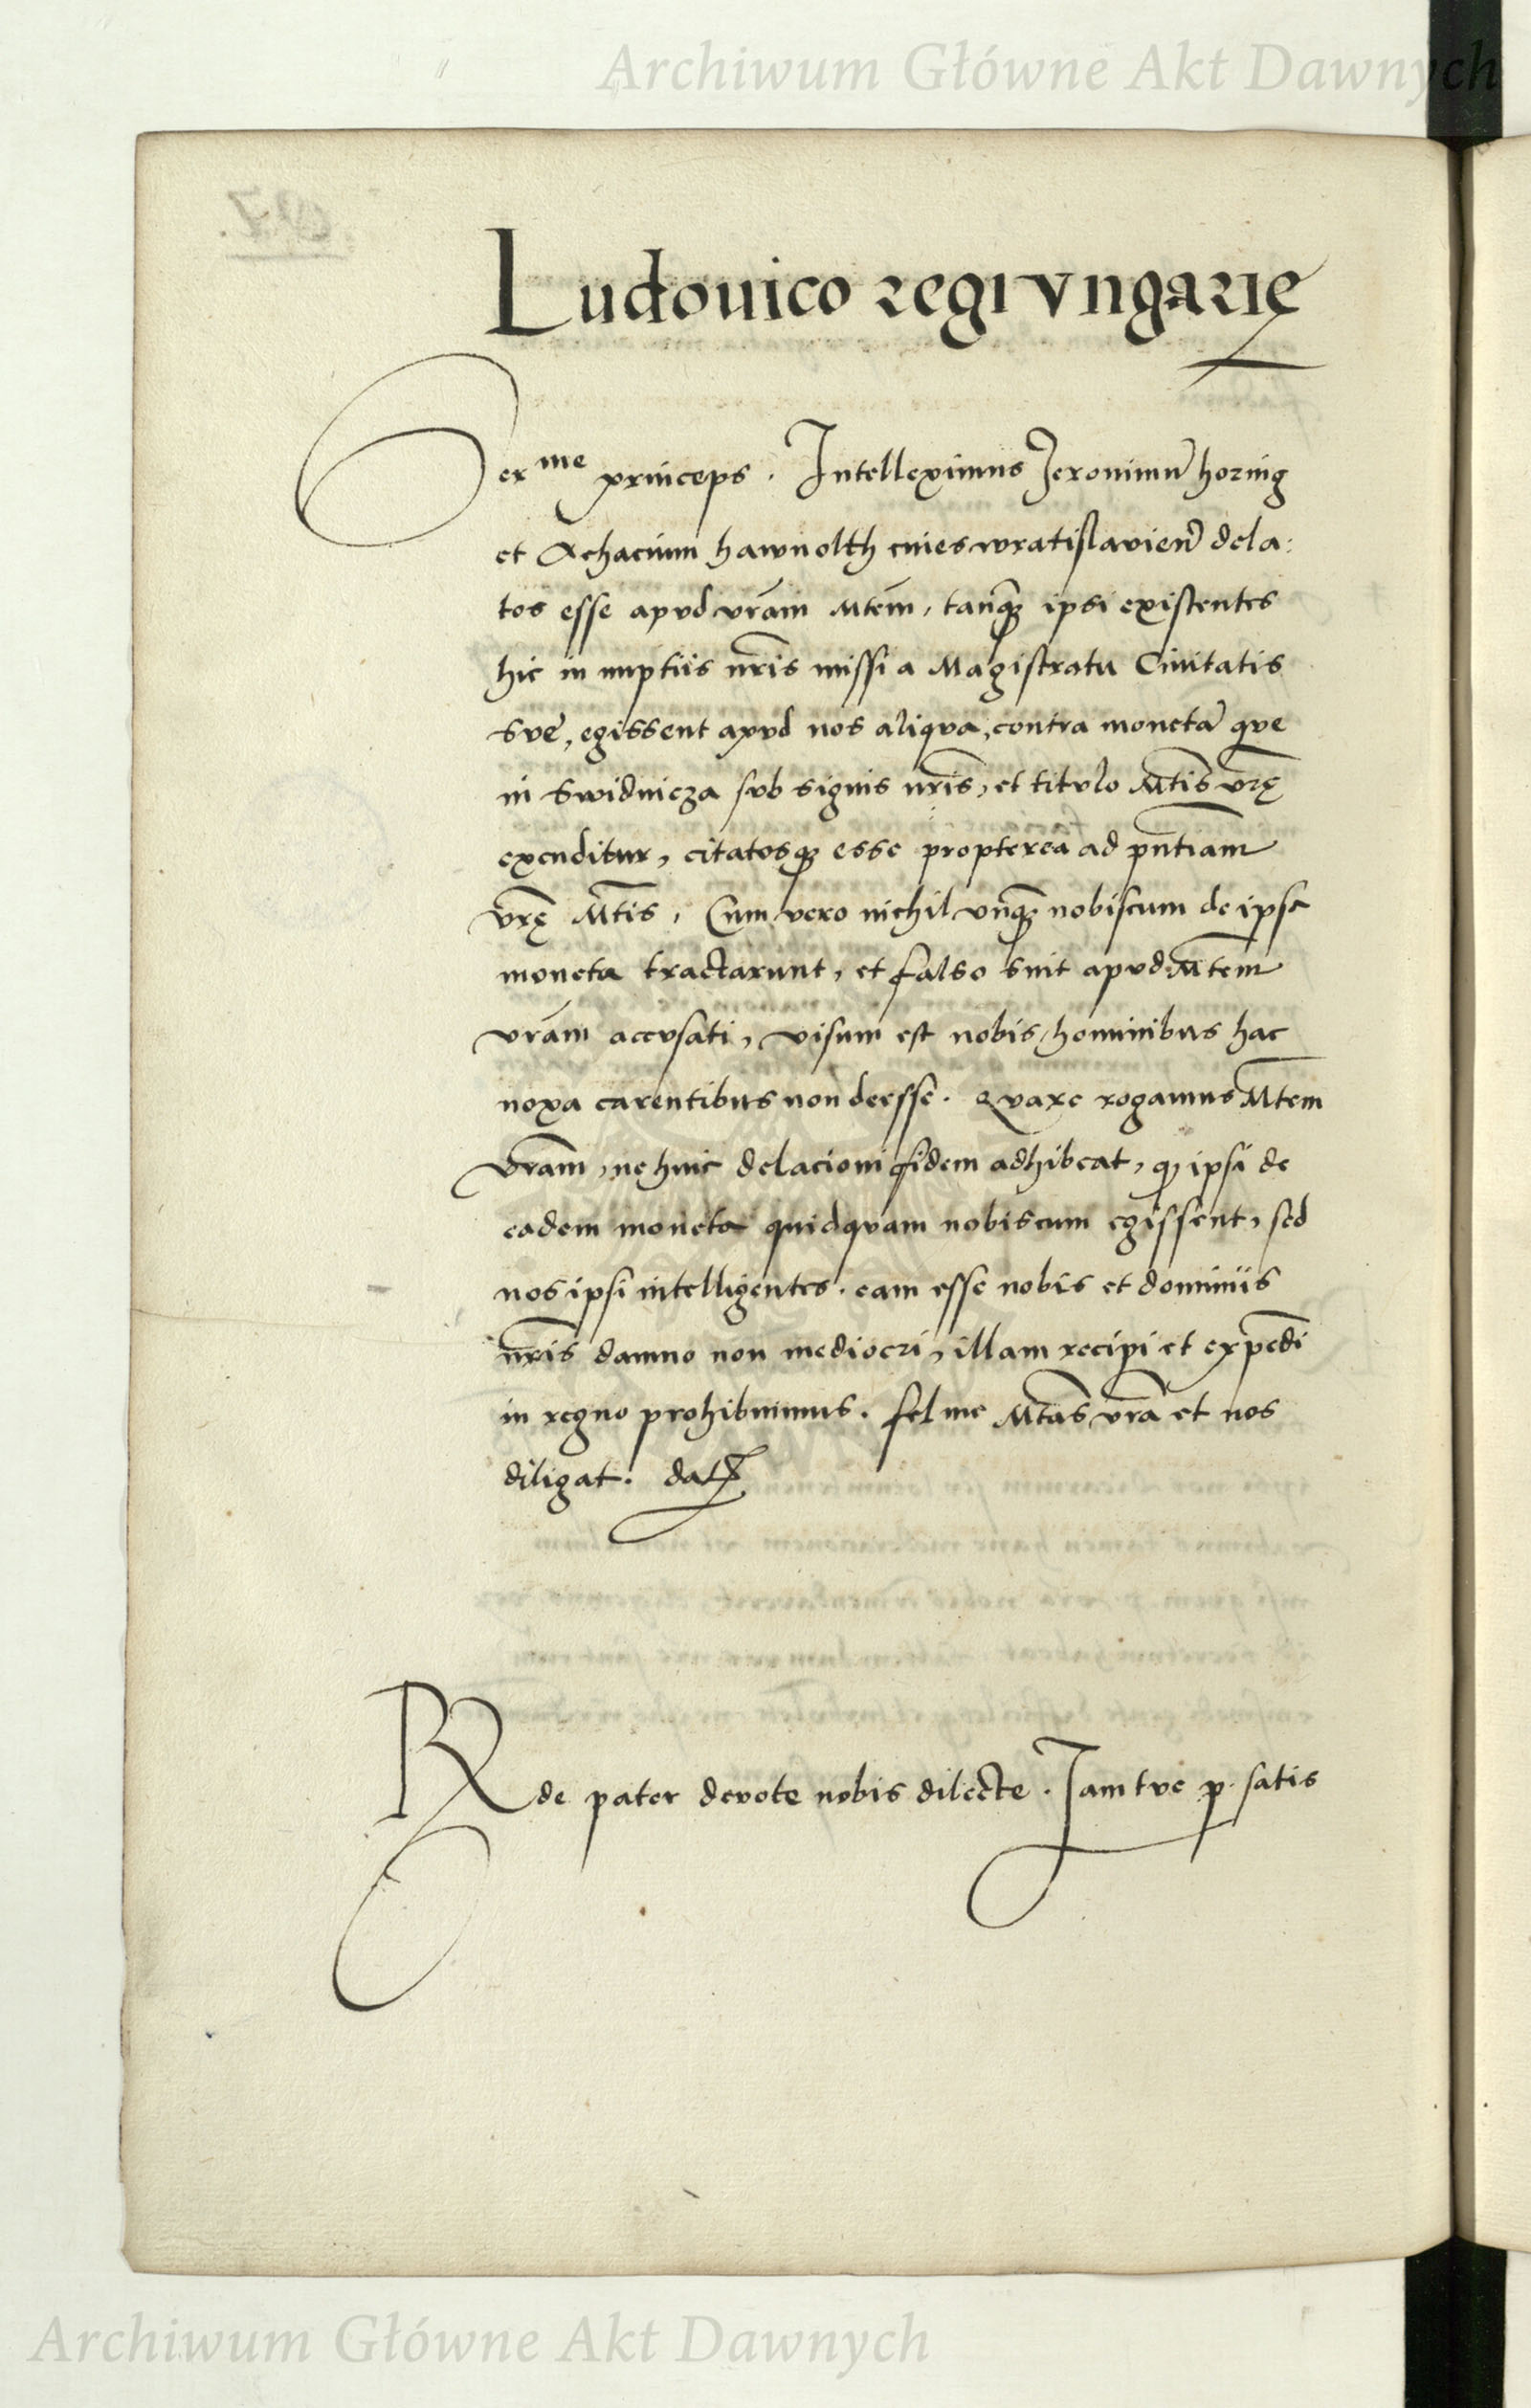 Archiwum Główne Akt Dawnych
Ludouico regi vngarię
Serme princeps . Intelleximus Jeronimū horing
et Achacium hawnolth ciues wratislavien̄ dela:
tos esse apvd vrām Mtēm, tanq̄ ipsi existentes
hic in nuptiis nr̄is missi a Magistratu Ciuitatis
Sve, egissent apvd nos aliqva, contra monetā qve
in Swidnicza svb signis nr̄is, et titvlo Mt̄is vr̄ę
excuditur, citatosq̨ esse propterea ad pn̄tiam
vr̄ę Mt̄is, Cum vero nichil vnq̄ nobiscum de ipsa
moneta tractarunt, et falso sint apvd Mt̄em
vrām accvsati, visum est nobis hominibus hac
noxa carentibus non deesse. Qvare rogamus Mt̄em
vrām, ne huic delacioni fidem adhibeat, q̨ ipsi de
eadem moneta quidqvam nobiscum egissent, sed
nos ipsi intelligentes. eam esse nobis et dominiis
nr̄is damno non mediocri, illam recipi et expēdi
in regno prohibuimus. fel me Mt̄as vrā et nos
diligat. dat̄
Rde pater devote nobis dilecte. Jam tve p. satis
Archiwum Główne Akt Dawnych